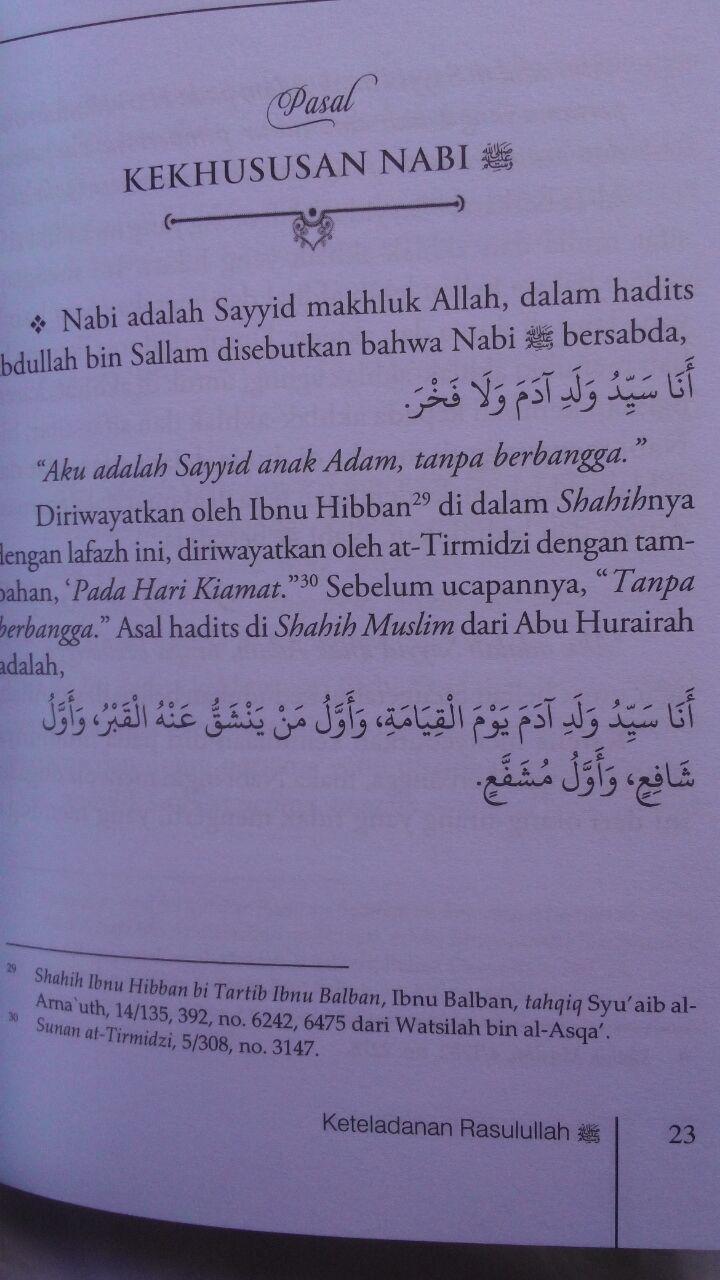 Pasal
KEKHUSUSAN NABI ﷺ
❖ Nabi adalah Sayyid makhluk Allah, dalam hadits
bdullah bin Sallam disebutkan bahwa Nabi ﷺ bersabda,
أَنَا سَيِّدُ وَلَدِ آدَمَ وَلَا فَخْرَ.
“Aku adalah Sayyid anak Adam, tanpa berbangga.”
Diriwayatkan oleh Ibnu Hibban²⁹ di dalam Shahihnya
dengan lafazh ini, diriwayatkan oleh at-Tirmidzi dengan tam-
bahan, ‘Pada Hari Kiamat.”³⁰ Sebelum ucapannya, “Tanpa
berbangga.” Asal hadits di Shahih Muslim dari Abu Hurairah
adalah,
أَنَا سَيِّدُ وَلَدِ آدَمَ يَوْمَ الْقِيَامَةِ، وَأَوَّلُ مَنْ يَنْشَقُّ عَنْهُ الْقَبْرُ، وَأَوَّلُ
شَافِعٍ، وَأَوَّلُ مُشَفَّعٍ.
²⁹ Shahih Ibnu Hibban bi Tartib Ibnu Balban, Ibnu Balban, tahqiq Syu’aib al-
Arna`uth, 14/135, 392, no. 6242, 6475 dari Watsilah bin al-Asqa’.
³⁰ Sunan at-Tirmidzi, 5/308, no. 3147.
Keteladanan Rasulullah ﷺ 23